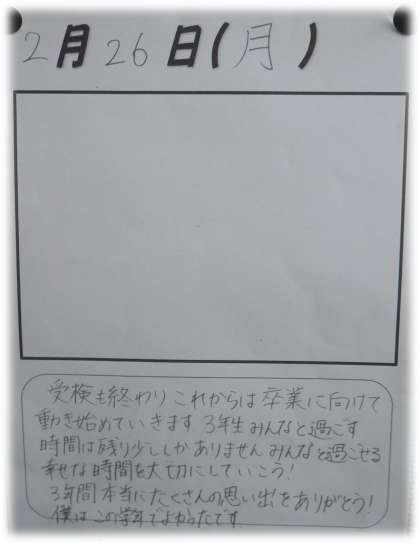 2月26日(月)
受検も終わりこれからは卒業に向けて
動き始めていきます 3年生みんなと過ごす
時間は残り少ししかありません みんなと過ごせる
幸せな時間を大切にしていこう!
3年間本当にたくさんの思い出をありがとう!
僕はこの学年でよかったです